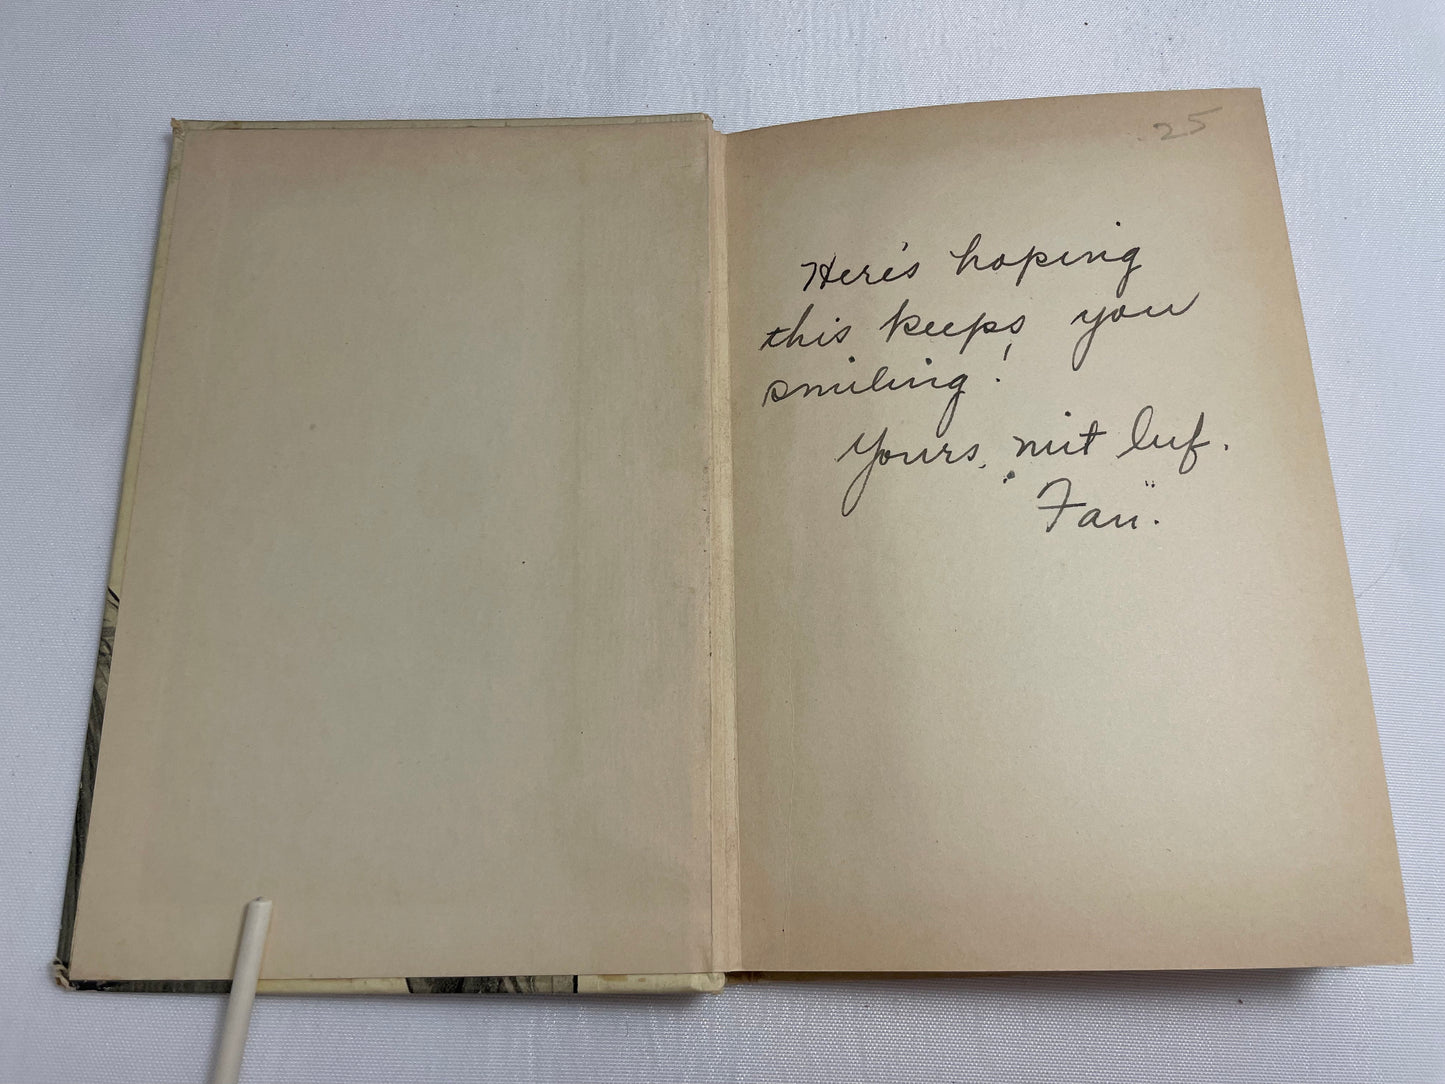 .25
Here's hoping
this keeps you
smiling!
Yours, mit luf.
"Fan".